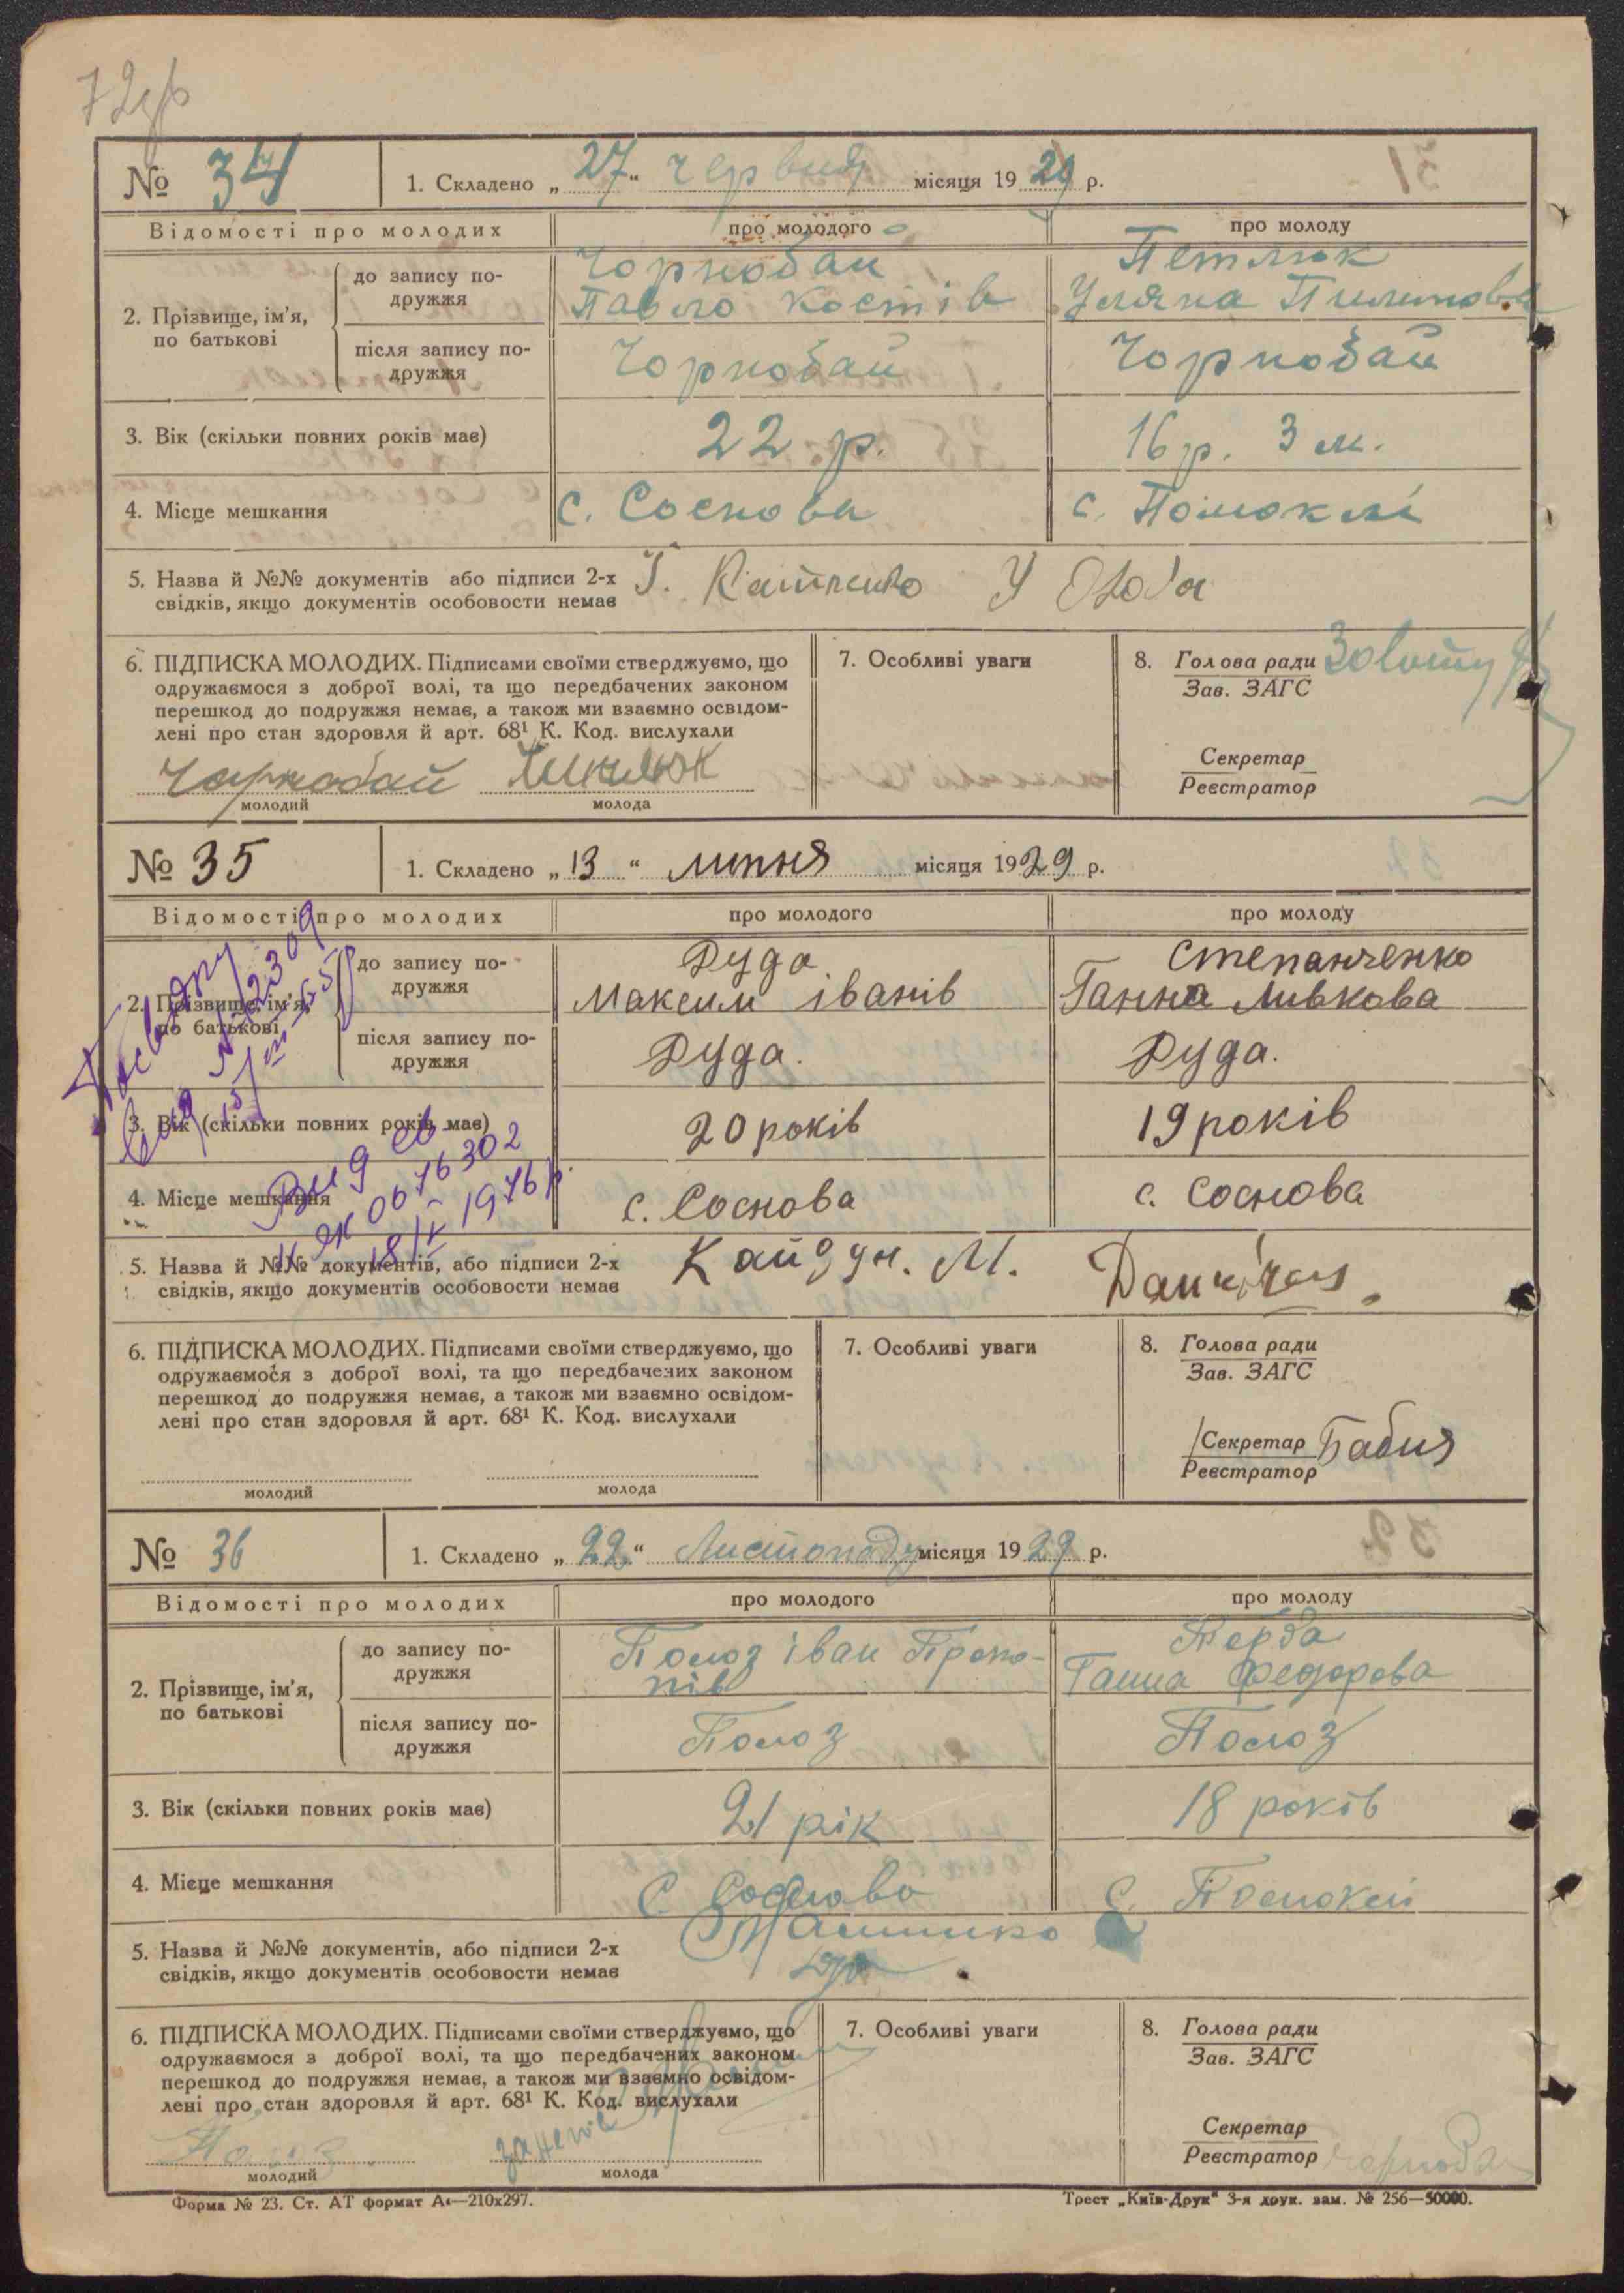 72зв
№ 34
1. Складено „27“ червня місяця 1929 р.
Відомості про молодих
про молодого
про молоду
2. Прізвище, ім’я, по батькові
до запису подружжя
Чорнобай
Павло Костів
Петлюк
Уляна Пилипова
після запису подружжя
Чорнобай
Чорнобай
3. Вік (скільки повних років має)
22 р.
16 р. 3 м.
4. Місце мешкання
с. Соснова
с. Помоклі
5. Назва й №№ документів або підписи 2-х
свідків, якщо документів особовости немає
6. ПІДПИСКА МОЛОДИХ. Підписами своїми стверджуємо, що
одружаємося з доброї волі, та що передбачених законом
перешкод до подружжя немає, а також ми взаємно освідом-
лені про стан здоровля й арт. 68¹ К. Код. вислухали
Чорнобай
молодий
молода
7. Особливі уваги
8. Голова ради
Зав. ЗАГС
Секретар
Реєстратор
№ 35
1. Складено „13“ липня місяця 1929 р.
Відомості про молодих
про молодого
про молоду
2. Прізвище, ім’я, по батькові
до запису подружжя
Дуда
Максим іванів
Степанченко
Ганна Ливкова
після запису подружжя
Дуда.
Дуда.
3. Вік (скільки повних років має)
20 років
19 років
4. Місце мешкання
с. Соснова
с. Соснова
Вид св
ІІ ЯК 0076302
18/V 1976 р.
5. Назва й №№ документів, або підписи 2-х
свідків, якщо документів особовости немає
Кайдун. М.
6. ПІДПИСКА МОЛОДИХ. Підписами своїми стверджуємо, що
одружаємося з доброї волі, та що передбачених законом
перешкод до подружжя немає, а також ми взаємно освідом-
лені про стан здоровля й арт. 68¹ К. Код. вислухали
молодий
молода
7. Особливі уваги
8. Голова ради
Зав. ЗАГС
Секретар
Реєстратор
Бабия
№ 36
1. Складено „22“ Листопаду місяця 1929 р.
Відомості про молодих
про молодого
про молоду
2. Прізвище, ім’я, по батькові
до запису подружжя
Полоз іван Проко-
пів
Ганна Федорова
після запису подружжя
Полоз
Полоз
3. Вік (скільки повних років має)
21 рік
18 років
4. Місце мешкання
С Соснова
С. Помоклі
5. Назва й №№ документів, або підписи 2-х
свідків, якщо документів особовости немає
6. ПІДПИСКА МОЛОДИХ. Підписами своїми стверджуємо, що
одружаємося з доброї волі, та що передбачених законом
перешкод до подружжя немає, а також ми взаємно освідом-
лені про стан здоровля й арт. 68¹ К. Код. вислухали
Полоз
молодий
молода
7. Особливі уваги
8. Голова ради
Зав. ЗАГС
Секретар
Реєстратор
Форма № 23. Ст. АТ формат А₄—210x297.
Трест „Київ-Друк“ 3-я друк. зам. № 256—50000.